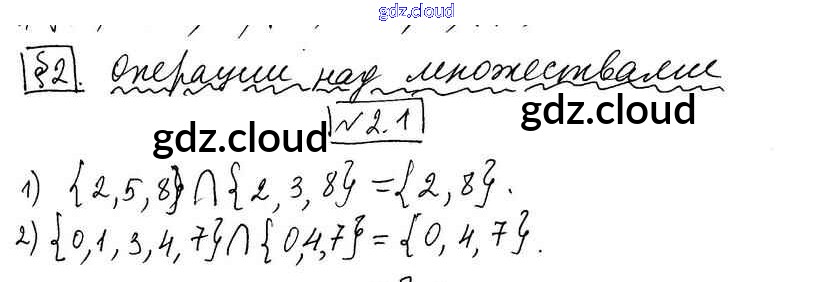 gdz.cloud
§2. Операции над множествами
№2.1
gdz.cloud gdz.cloud
1) {2,5,8}∩{2,3,8}={2,8}.
2) {0,1,3,4,7}∩{0,4,7}={0,4,7}.